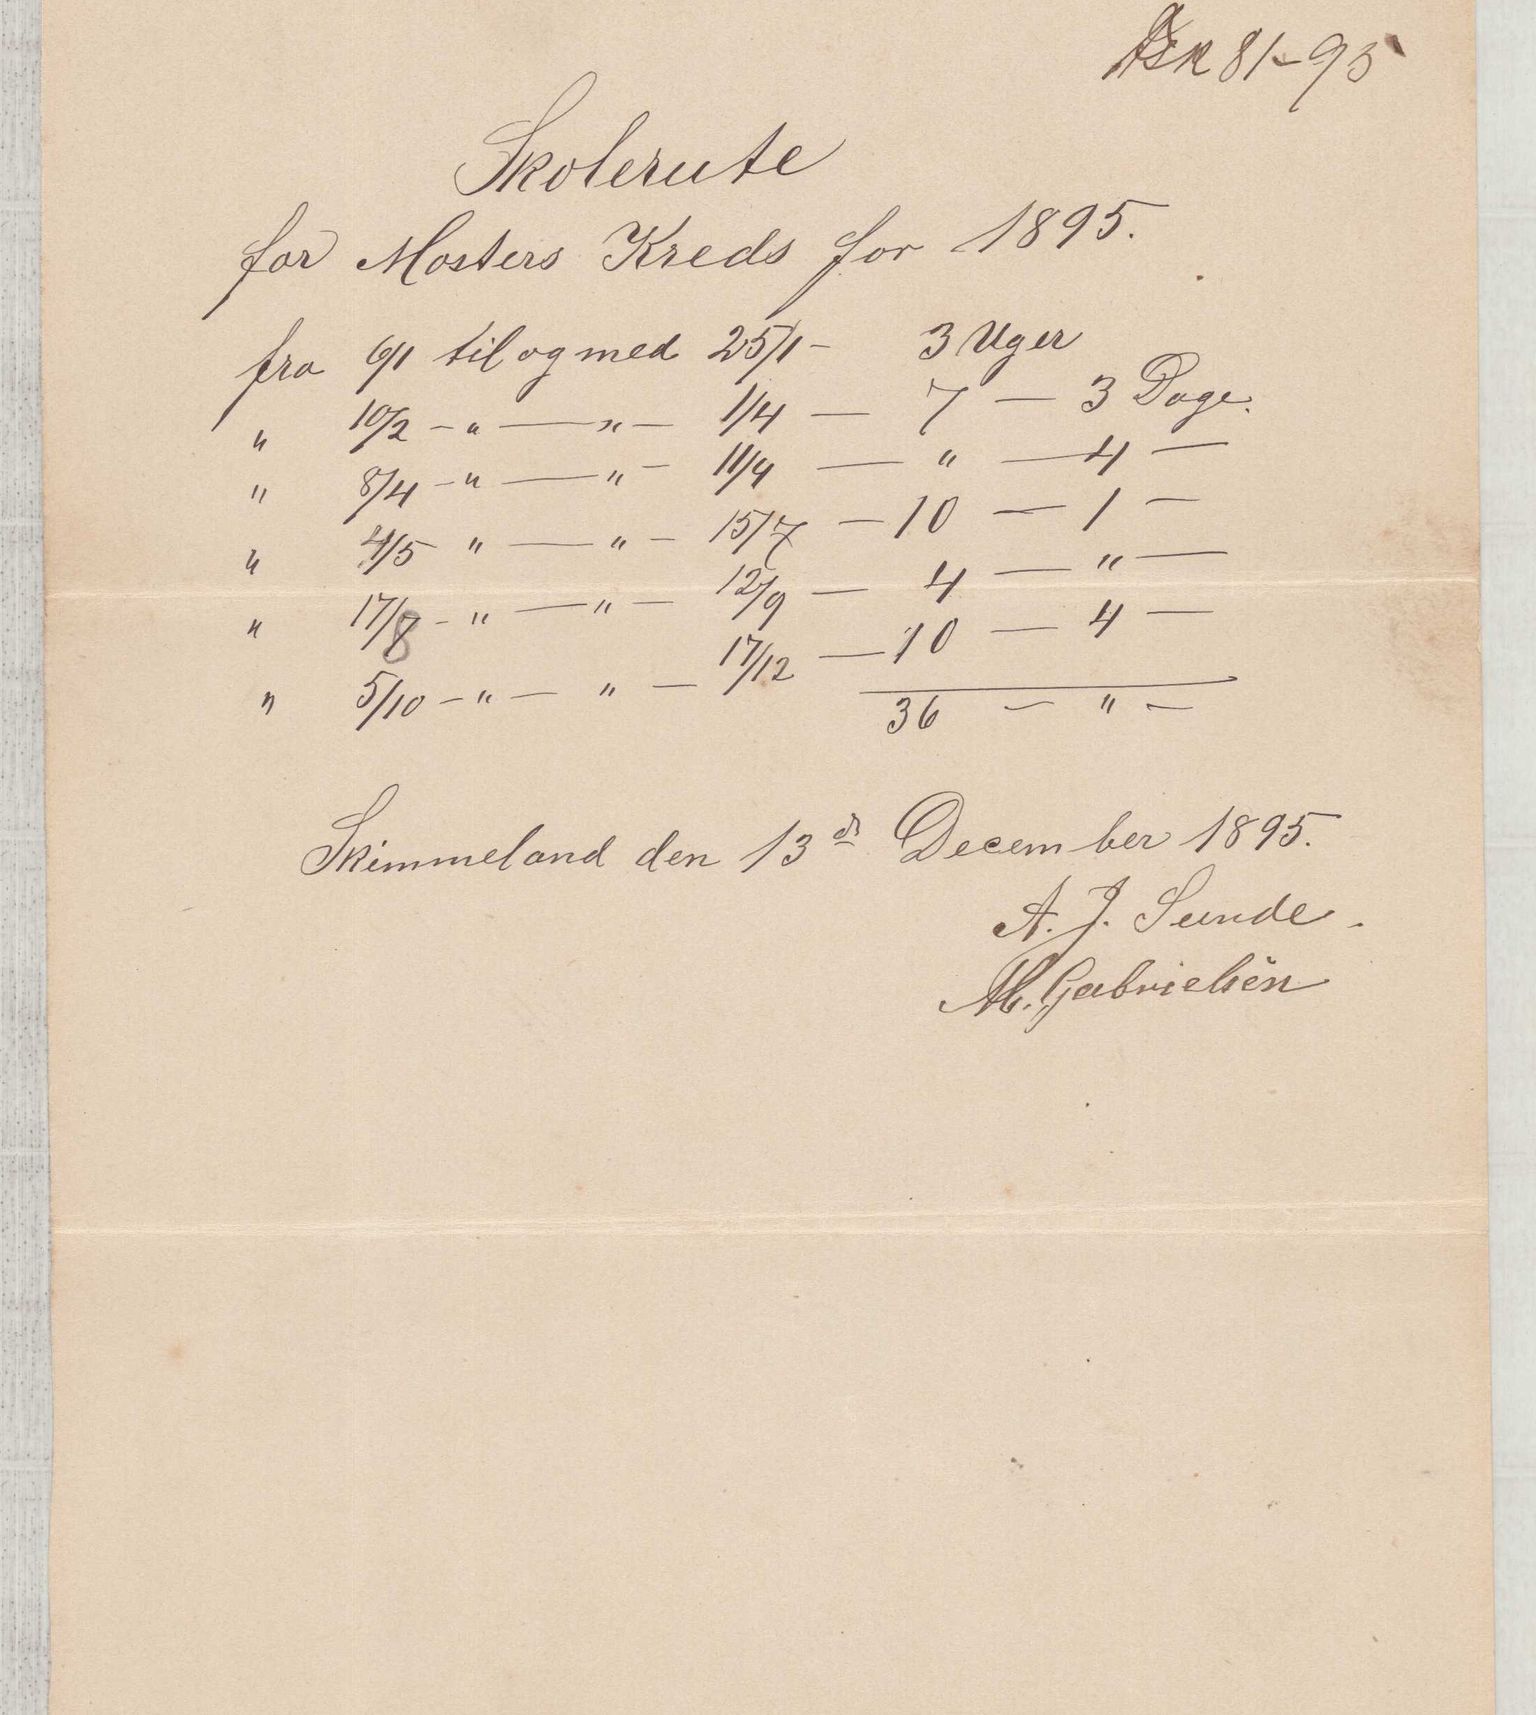 81-95
Skolerute
for Mosters Kreds for 1895.
fra 6/1 til og med 25/1 - 3 Uger
" 10/2 - " — " - 1/4 — 7 — 3 Dage.
" 8/4 - " — " - 11/4 — " — 4 —
" 4/5 " — " - 15/7 — 10 — 1 -
" 17/8 - " — " - 12/9 — 4 — " —
" 5/10 - " — " — 17/12 — 10 — 4 —
36 — " —
Skimmeland den 13de December 1895.
A. J. Sunde.
M. Gabrielsen